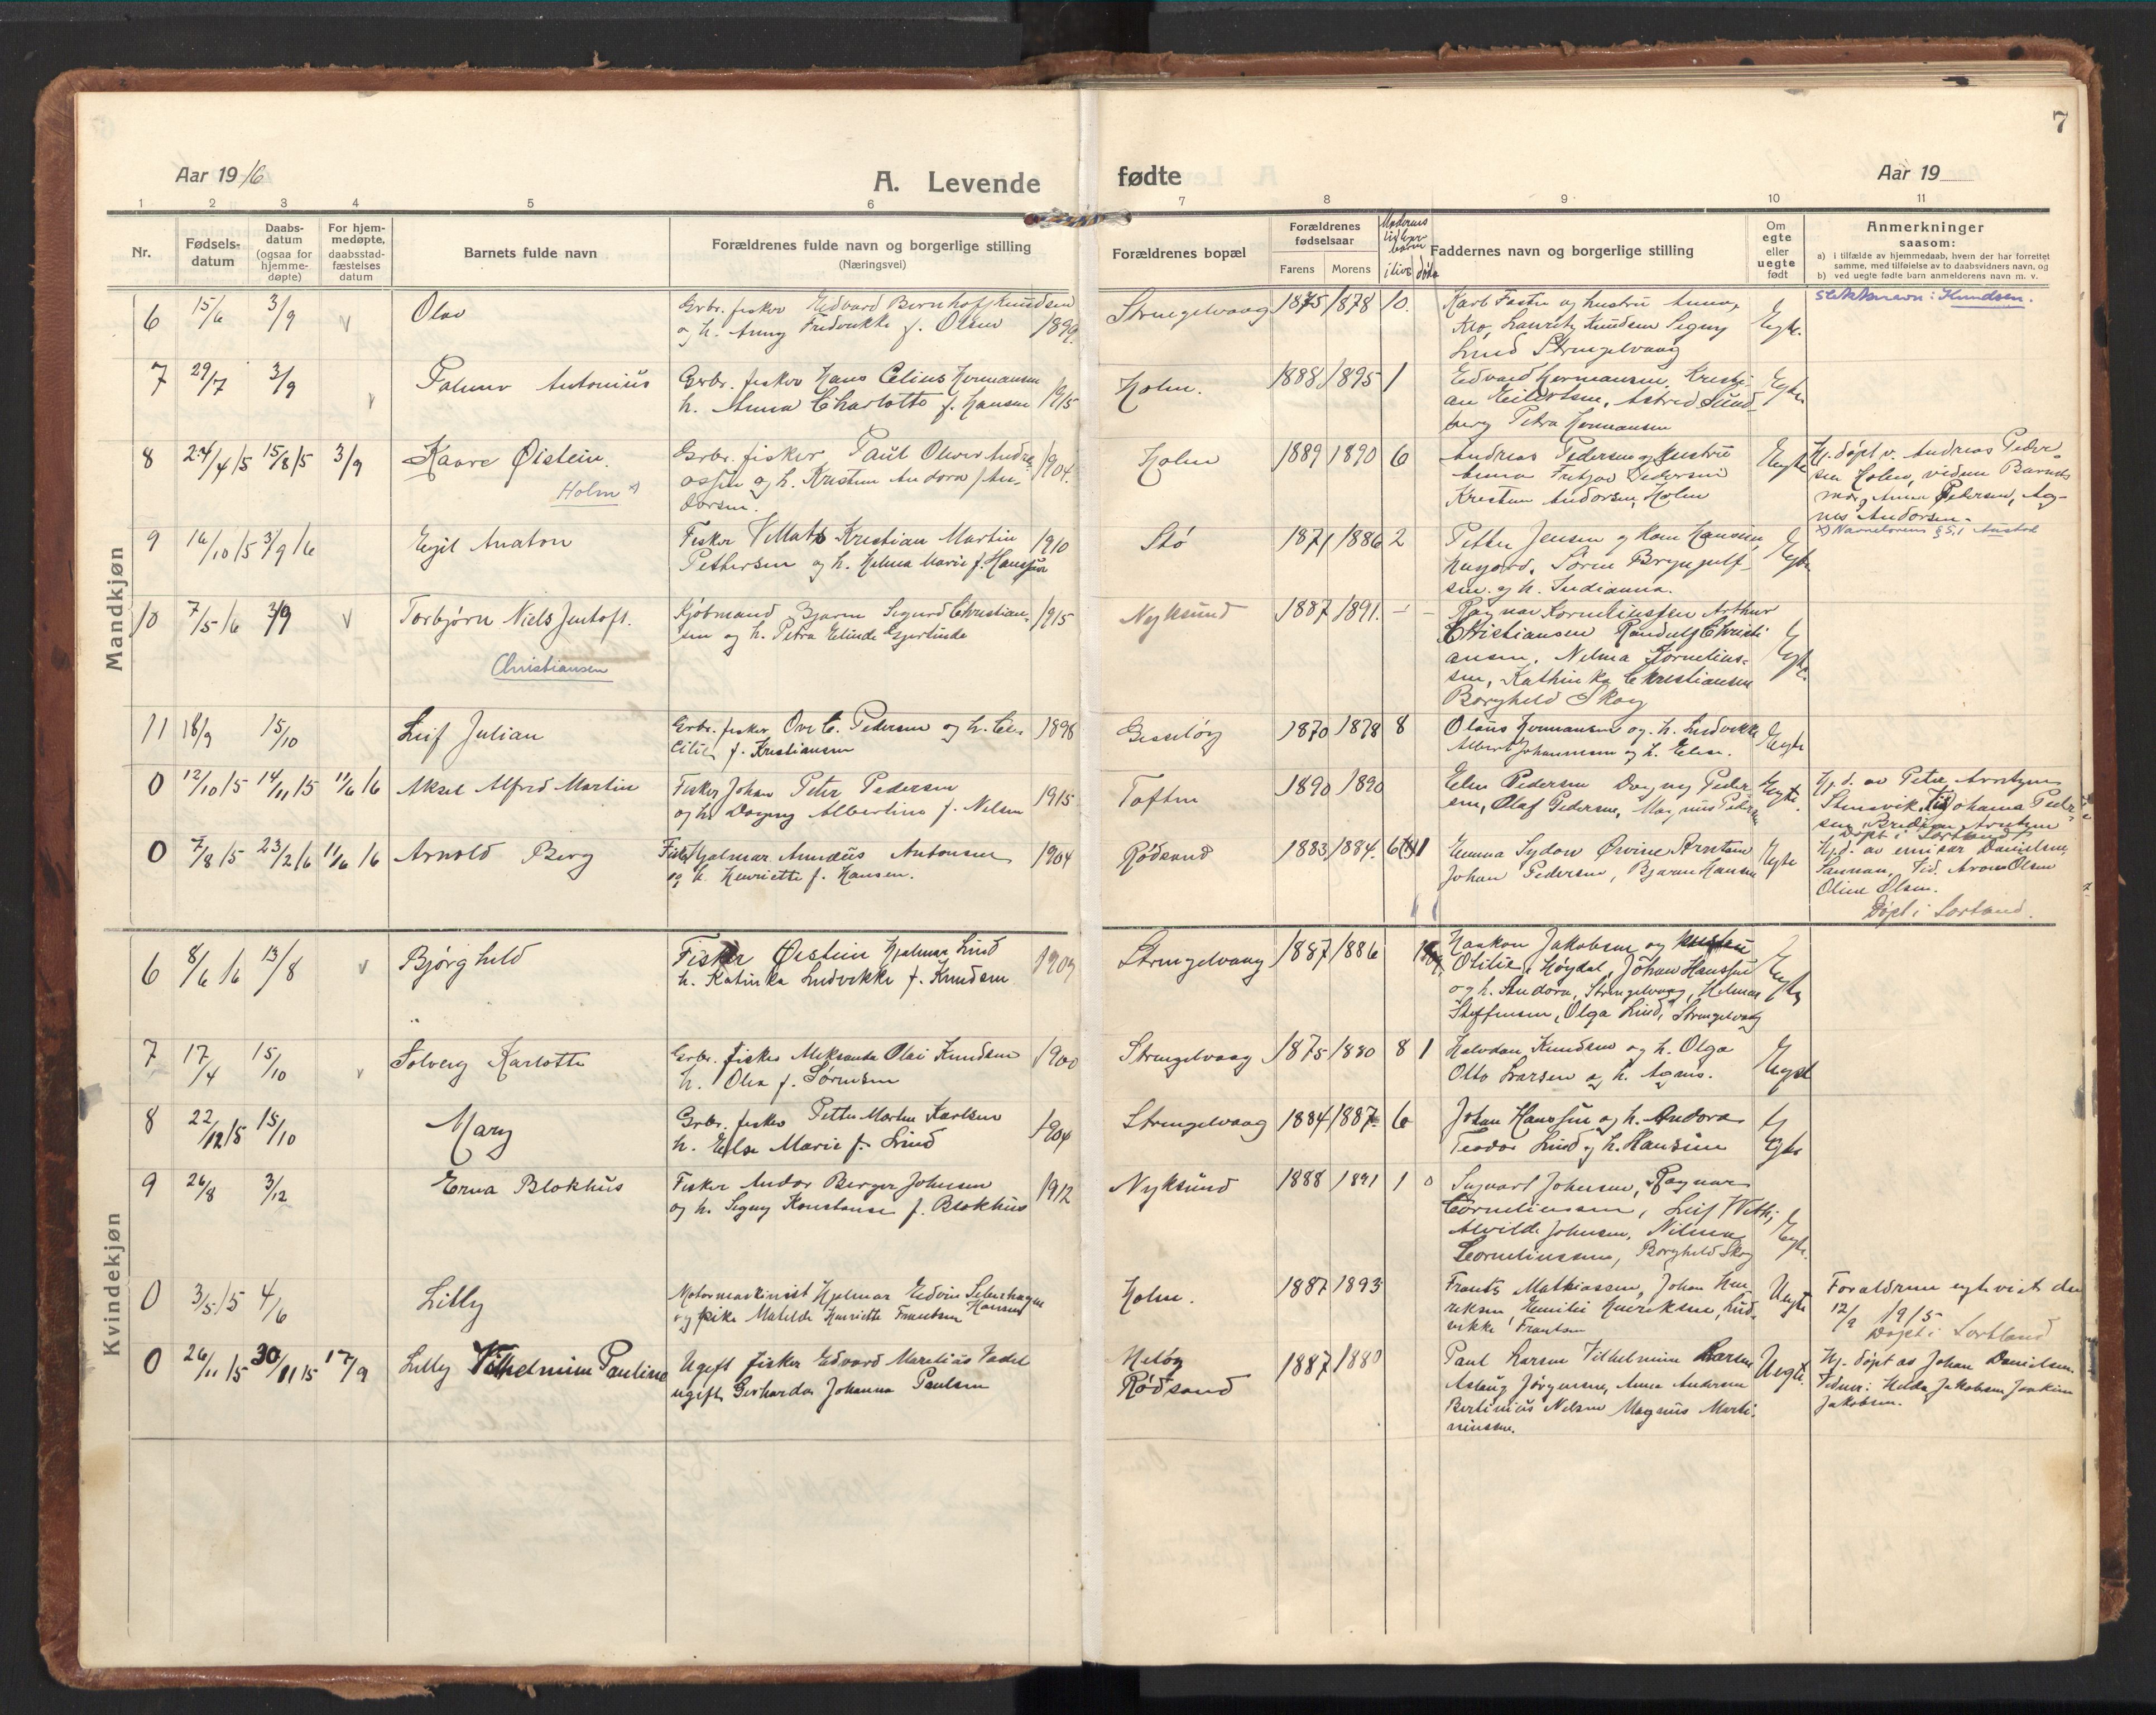 7
Aar 1916
A. Levende fødte
Aar 19
1 2 3 4 5 6 7 8 9 10 11
Nr.
Fødsels-
datum
Daabs-
datum
(ogsaa for
hjemme-
døpte)
For hjem-
medøpte,
daabsstad-
fæstelses
datum
Barnets fulde navn
Forældrenes fulde navn og borgerlige stilling
(Næringsvei)
Forældrenes bopæl
Forældrenes
fødselsaar
Farens Morens
i live døde
Faddernes navn og borgerlige stilling
Om
egte
eller
uegte
født
Anmerkninger
saasom:
a) i tilfælde av hjemmedaab, hvem der har forrettet
samme, med tilføielse av to daabsvidners navn, og
b) ved uegte fødte barn anmelderens navn m. v.
Mandkjøn
6 15/6 3/9 v Olav
Grbr. fisker Edvard Bernhof Knudsen
og h. Anny Fredrikke f. Olsen 1899.
Strengelvaag 1875/1878 10.
Karl Faste og hustru Anna,
Klo, Lauritz Knudsen Signy
Lind Strengelvaag
Egte.
Slektsnavn: Knudsen.
7 29/7 3/9 v Palmer Antonius
Grbr. fisker Hans Celius Hermansen
h. Anna Charlotte f. Hansen 1915
Holm. 1888/1895 1
Edvard Hermansen, Kristi-
an Eilertsen, Astrid Lund
berg Petra Hermansen
Egte
8 24/4 15 15/8 15 3/9 Kaare Øistein.
Holm x)
Grbr. fisker Paul Oliver Andre
assen og h. Kristine Andora f An-
dorsen. 1904.
Holm 1889 1890 6
Andreas Pedersen og hustru
Anna Fritjov Pedersen
Kristian Andorsen, Holm
Egte
Hj. døpt v. Andreas Peder-
sen Holm, vidner Barnets
mor, Anna Pedersen, Ag-
nes Andorsen.
x) Navnelovens § 5,1
9 16/10 15 3/9 16 Egil Anaton
Fisker Kristian Martin
Pettersen og h. Helma Marie f. Hanssen 1910
Stø 1871/1886 2
Petter Jensen og Hanssen
Søren Brynjulf-
sen og h. Indianna.
Egte
10 7/5 16 3/9 v Torbjørn Niels Jentoft.
Christiansen
Kjøbmand Bjarne Sigurd Christian-
sen og h. Petra Elinde Gjertinde 1915
Nyksund 1887/1891. — —
Ragnar Korneliussen Arthur
Christiansen Randulf Christi
ansen, Nelma Kornelius-
sen, Kathinka Christiansen
Borghild Skog
Egte.
11 18/9 15/10 Leif Julian
Grbr. fisker Ove C. Pedersen og h. Ce-
cilie f. Kristiansen 1898
Gisløy 1870/1878 8
Olaus Hermansen og h. Ludvikke
Albert Johannesen og h. Elen.
Egte
0 12/10 15 14/11 15 11/6 16 Aksel Alfred Martin
Fisker Johan Peter Pedersen
og h. Dagny Albertine f. Nilsen 1915
Toften 1890/1890
Elen Pedersen Dagny Peder
sen, Olaf Pedersen, Magnus Pedersen
Egte.
Hj. d. av Peter Arntzen
Stensvik, Johanna Peder
sen Arntzen
Døpt i Sortland
0 7/8 15 23/2 16 11/6 16 Arnold Berg
Fisker Hjalmar Amæus Antonsen
og h. Henriette f. Hansen. 1904
Rødsand 1883/1884. 6 1
Emma Sydow Ørvine Arntsen
Johan Pedersen, Bjarne Hansen
Egte
Hj. d. av emisær Danielsen,
Sannan, Vid. Aron Olsen
Oline Olsen.
Døpt i Sortland.
Kvindekjøn
6 8/6 16 13/8 v Bjørghild
Fisker Øistein Hjalmar Lind
h. Katinka Ludvikke f. Knudsen 1909
Strengelvaag 1887/1886
Haakon Jakobsen og hustru
Otilie, Høydal, Johan Hanssen
og h. Andora, Strengelvaag, Helmer
Steffensen, Olga Lind, Strengelvaag
Egte
7 17/4 15/10 v Solveig Karlotte
Grbr. fisker Aleksander Olai Knudsen
h. Olea f. Sørensen 1900
Strengelvaag 1875/1880 8 1
Halvdan Knudsen og h. Olga
Otto Larsen og h. Agnes.
Egte
8 22/12 15 15/10 Mary
Grbr. fisker Petter Martin Karlsen
h. Else Marie f. Lind 1904
Strengelvaag 1884/1887 6
Johan Hanssen og h. Andora
Teodor Lind og h. Hansine
Egte
9 26/8 3/12 Erna Blokhus
Fisker Andor Berger Johnsen
og h. Signy Konstanse f. Blokhus 1912
Nyksund 1888/1891 1 0
Sigvart Johnsen, Ragnar
Corneliussen, Leif Weth,
Alvilde Johnsen, Nilma
Corneliussen, Borghild Skog
Egte.
0 3/5 15 4/6 Lilly
Motormaskinist Hjelmar Edvin Hansen
og pike Matilde Henriette Frantsen
Holm. 1887 1893
Frantz Mathiassen, Johan Hen
riksen Emilie Henriksen, Lud-
vikke Frantsen
Uegte
Forældrene egteviet den
12/9 1915
Døpt i Sortland
0 26/11 15 30/11 15 17/9 Lilly Vilhelmine Pauline
Ugift fisker Edvard Marelius Vadel
ugift Gerharda Johanna Paulsen
Meløy
Rødsand 1887/1880
Paul Larsen Vilhelmine Larsen
Aslaug Jørgensen, Anna Andersen
Bertinius Nilsen Magnus Marti-
niussen.
Uegte.
Hj. døpt av Johan Danielsen
Vidner: Helda Jakobsen Joakim
Jakobsen.